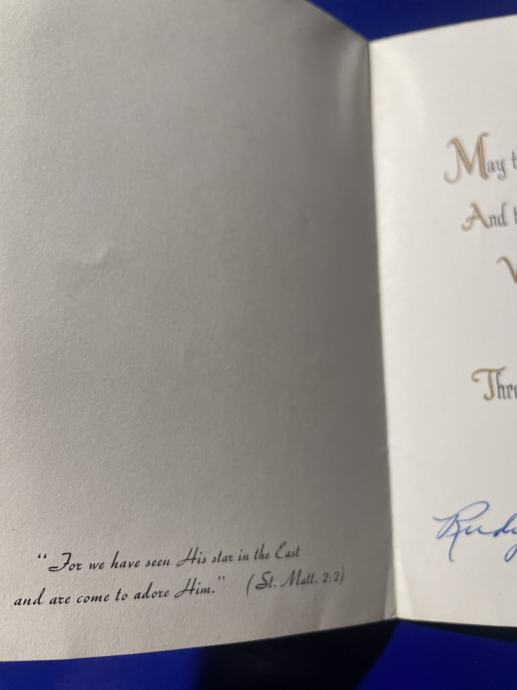 "For we have seen His star in the East
and are come to adore Him." (St. Matt. 2:2)
May
And
Rudy